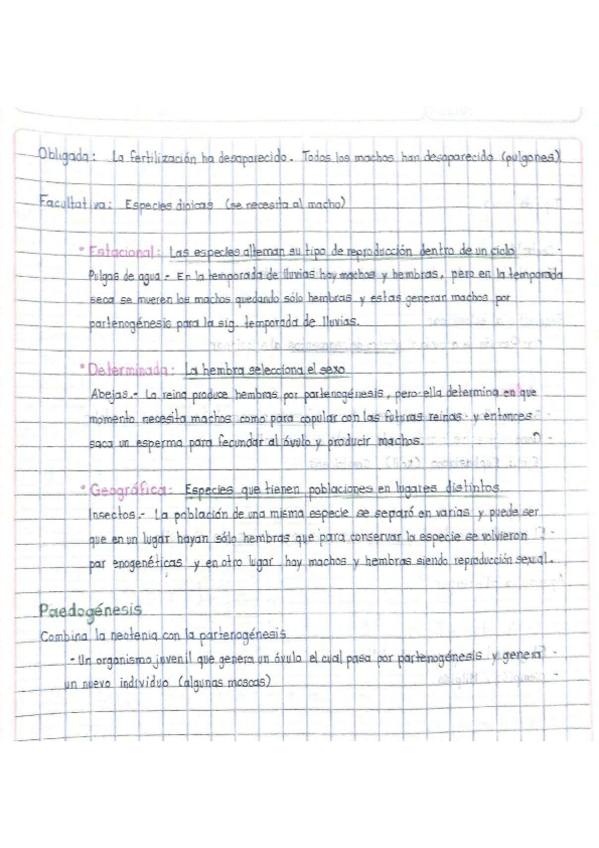 Obligada: La fertilización ha desaparecido. Todos los machos han desaparecido (pulgones)
Facultativa: Especies dioicas (se necesita al macho)
• Estacional: Las especies alternan su tipo de reproducción dentro de un ciclo
Pulgas de agua.- En la temporada de lluvias hay machos y hembras, pero en la temporada
seca se mueren los machos quedando sólo hembras y estas generan machos por
partenogénesis para la sig. temporada de lluvias.
• Determinada: La hembra selecciona el sexo
Abejas.- La reina produce hembras por partenogénesis, pero ella determina en que
momento necesita machos como para copular con las futuras reinas y entonces
saca un esperma para fecundar al óvulo y producir machos.
• Geográfica: Especies que tienen poblaciones en lugares distintos
Insectos.- La población de una misma especie se separó en varias y puede ser
que en un lugar hayan sólo hembras que para conservar la especie se volvieron
par enogenéticas y en otro lugar hay machos y hembras siendo reproducción sexual.
Paedogénesis
Combina la neotenia con la partenogénesis
- Un organismo juvenil que genera un óvulo el cual pasa por partenogénesis y genera
un nuevo individuo (algunas moscas)